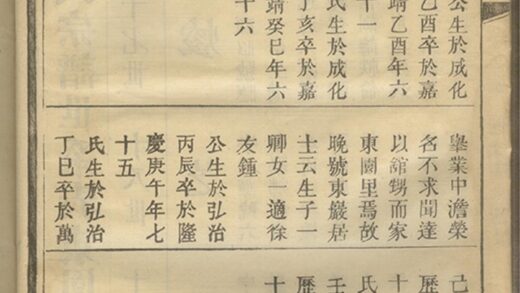 公生於成化
乙酉卒於嘉
靖乙酉年六
十一
氏生於成化
丁亥卒於嘉
靖癸巳年六
十六
畢業中澹榮
名不求聞達
以舘甥而家
東園里焉故
晚號東嚴居
士云生子一
卿女一適徐
友鍾
公生於弘治
丙辰卒於隆
慶庚午年七
十五
氏生於弘治
丁巳卒於萬
己
歷
十
氏
壬
歷
十